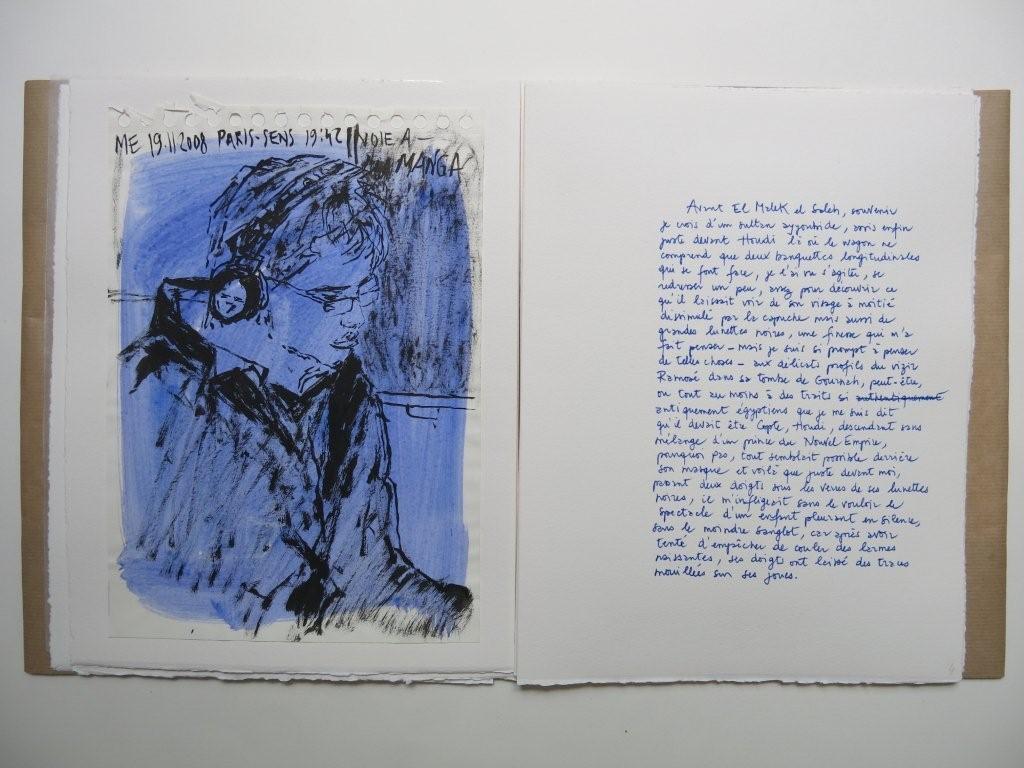 ME 19.11.2008 PARIS-SENS 19:42 VOIE A —
MANGA
Avant El Malek el Saleh, souvenir
je crois d'un sultan ayyoubide, assis enfin
juste devant Houdi là où le wagon ne
comprend que deux banquettes longitudinales
qui se font face, je l'ai vu s'agiter, se
redresser un peu, assez pour découvrir ce
qu'il laissait voir de son visage à moitié
dissimulé par la capuche mais aussi de
grandes lunettes noires, une finesse qui m'a
fait penser – mais je suis si prompt à penser
de telles choses – aux délicats profils du vizir
Ramosé dans sa tombe de Gournah, peut-être,
ou tout au moins à des traits si authentiquement
antiquement égyptiens que je me suis dit
qu'il devait être Copte, Houdi, descendant sans
mélange d'un prince du Nouvel Empire,
pourquoi pas, tout semblait possible derrière
son masque et voilà que juste devant moi,
passant deux doigts sous les verres de ses lunettes
noires, il m'infligeait sans le vouloir le
spectacle d'un enfant pleurant en silence,
sans le moindre sanglot, car après avoir
tenté d'empêcher de couler des larmes
naissantes, ses doigts ont laissé des traces
mouillées sur ses joues.